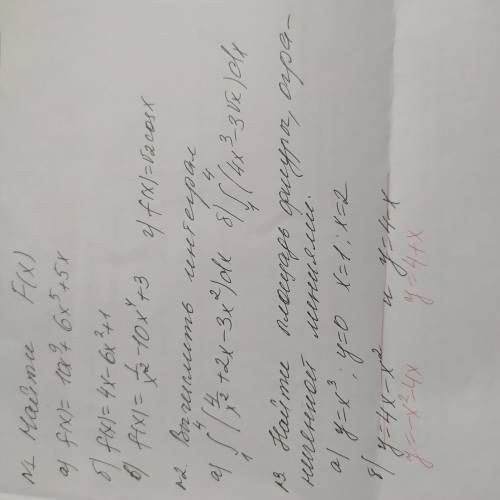 №1 Найти F(x)
а) f(x) = 10x⁹ + 6x⁵ + 5x
б) f(x) = 4x - 6x² + 1
в) f(x) = 1/x² - 10x⁴ + 3 г) f(x) = √2 cos x
№2 Вычислить интеграл
а) ∫₁⁴ (4/x² + 2x - 3x²) dx б) ∫₁⁴ (4x³ - 3√x) dx
№3 Найти площадь фигуры, огра-
ниченной линиями.
а) y = x³; y = 0 x = 1; x = 2
б) y = 4x - x² и y = 4 - x
y = -x² - 4x y = 4 + x